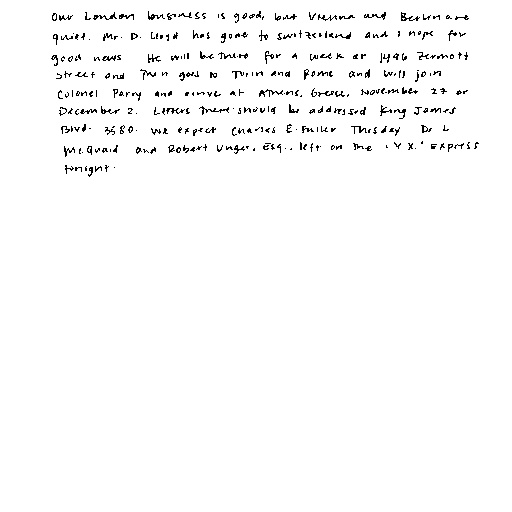 Our London business is good, but Vienna and Berlin are
quiet. Mr. D. Lloyd has gone to Switzerland and I hope for
good news. He will be there for a week at 1496 Zermott
Street and then goes to Turin and Rome and will join
Colonel Parry and arrive at Athens, Greece, November 27 or
December 2. Letters there should be addressed King James
Blvd. 3580. We expect Charles E. Fuller Tuesday. Dr. L
McQuaid and Robert Unger, Esq., left on the "Y.X." Express
tonight.